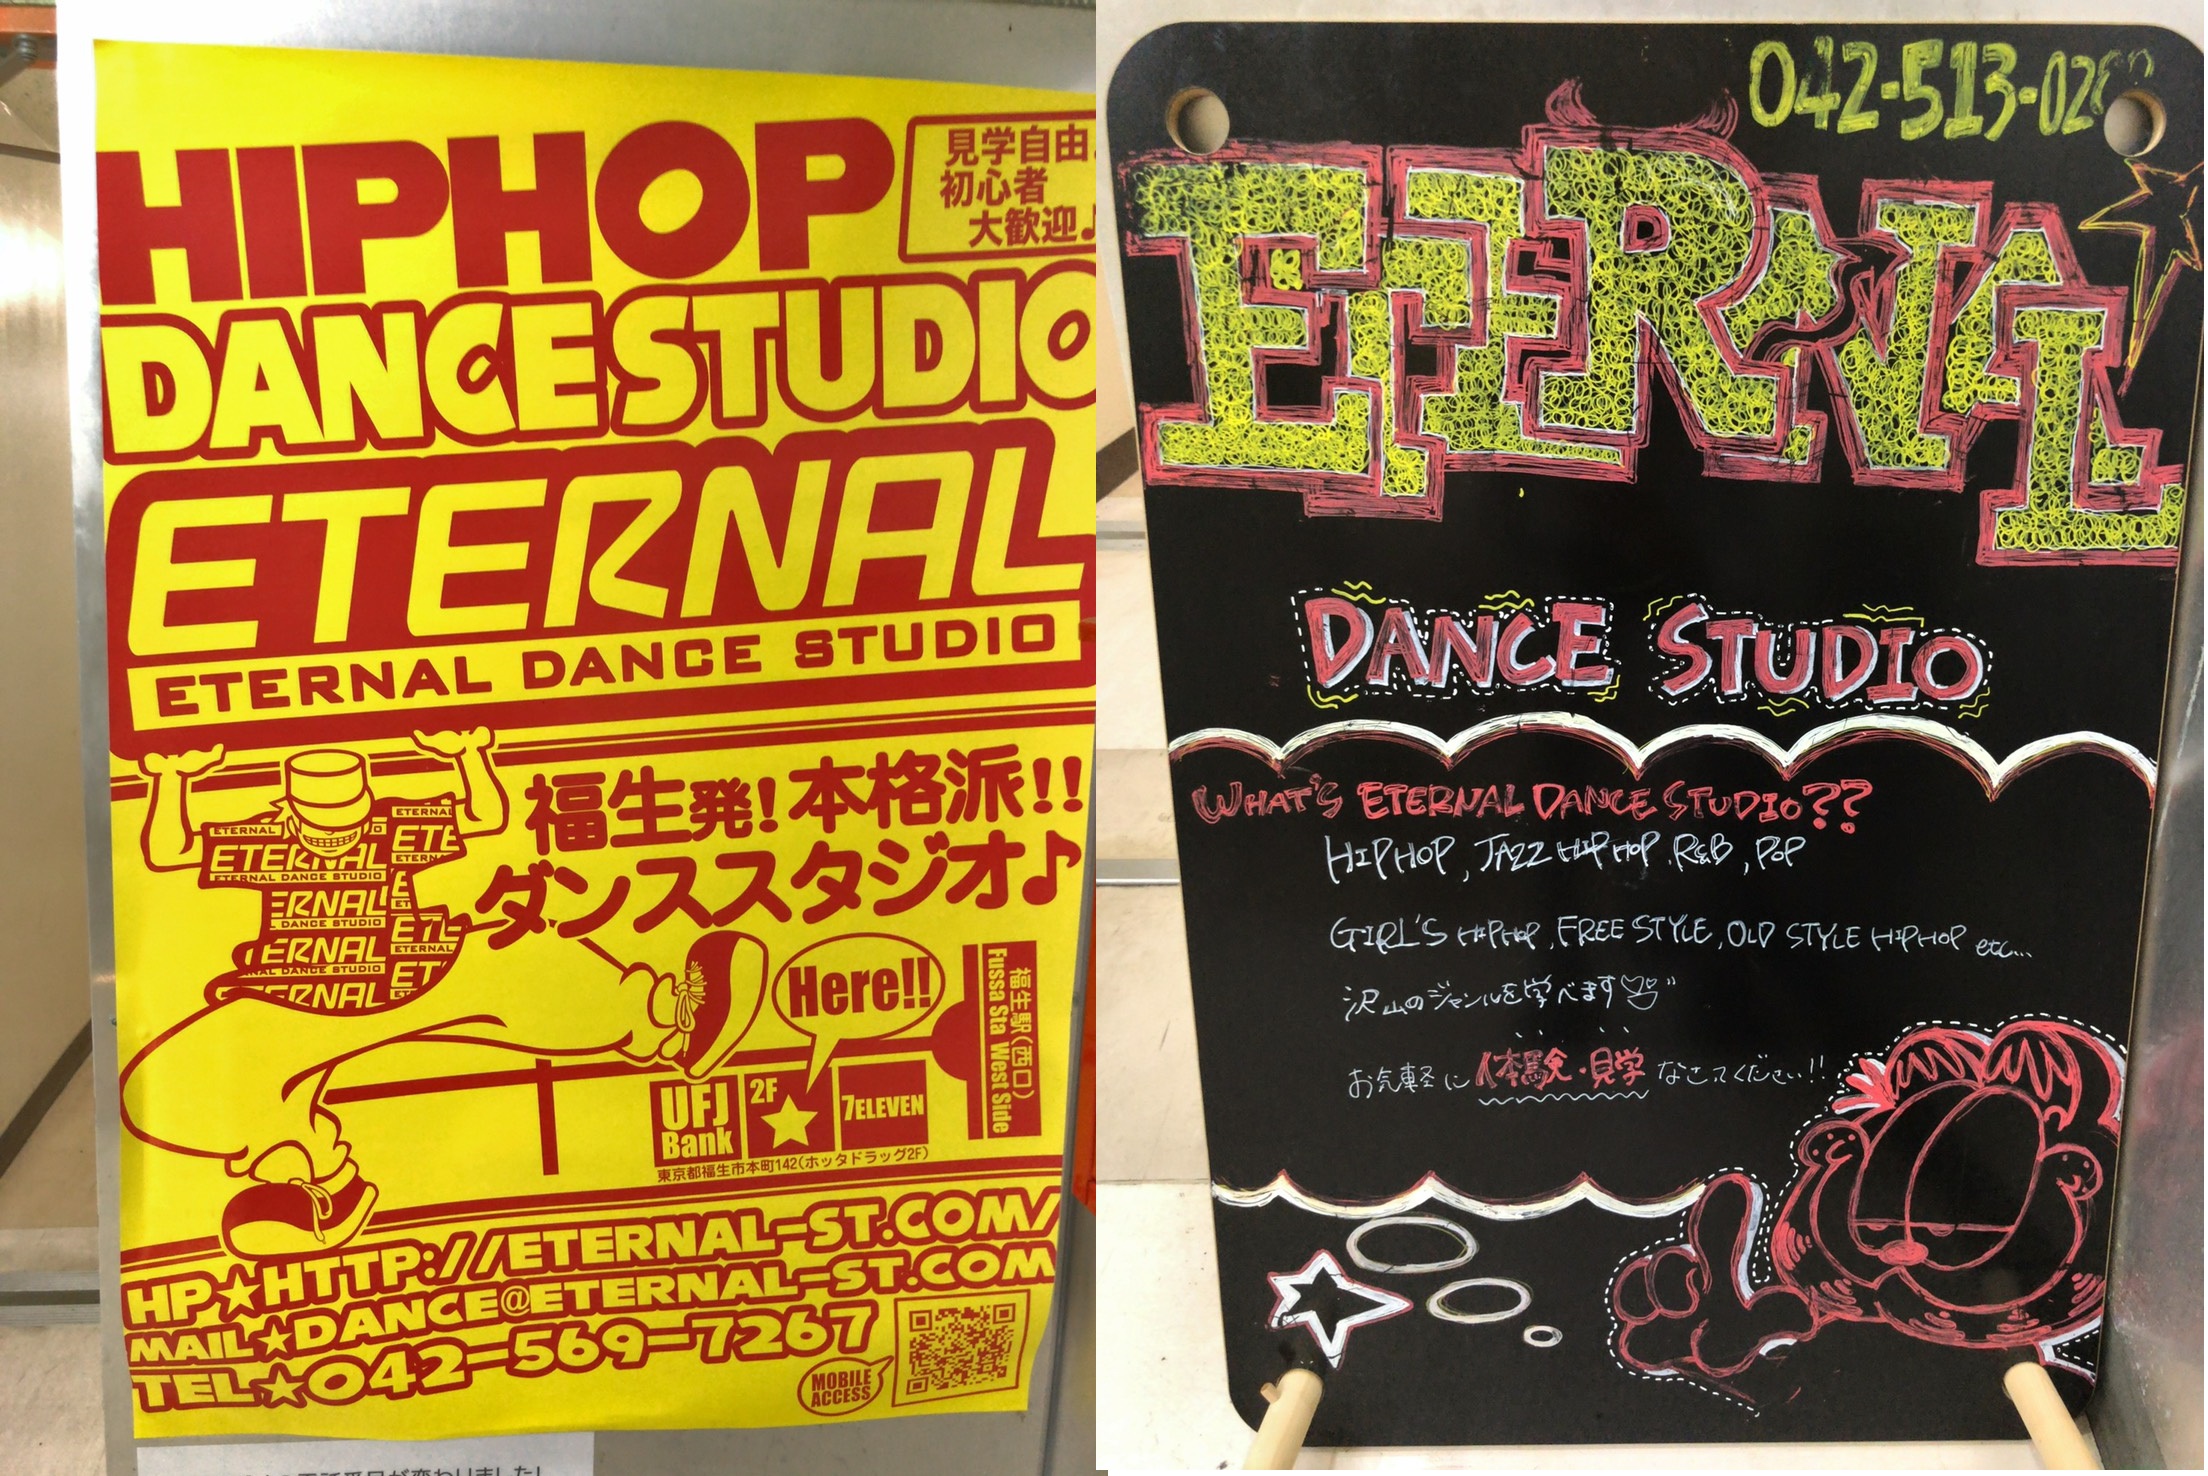 HIPHOP
見学自由♪
初心者
大歓迎♪
DANCE STUDIO
ETERNAL
ETERNAL DANCE STUDIO
福生発!本格派!!
ダンススタジオ♪
ETERNAL
ETERNAL
ETERNAL DANCE STUDIO
Here!!
福生駅(西口)
Fussa Sta West Side
UFJ Bank
2F
7ELEVEN
東京都福生市本町142(ホッタドラッグ2F)
HP★HTTP://ETERNAL-ST.COM/
MAIL★DANCE@ETERNAL-ST.COM
TEL★042-569-7267
MOBILE ACCESS
042-513-02
ETERNAL
DANCE STUDIO
WHAT'S ETERNAL DANCE STUDIO??
HIPHOP, JAZZ HIPHOP, R&B, POP
GIRL'S HIPHOP, FREE STYLE, OLD STYLE HIPHOP etc...
沢山のジャンルを学べます
お気軽に体験・見学なさってください!!